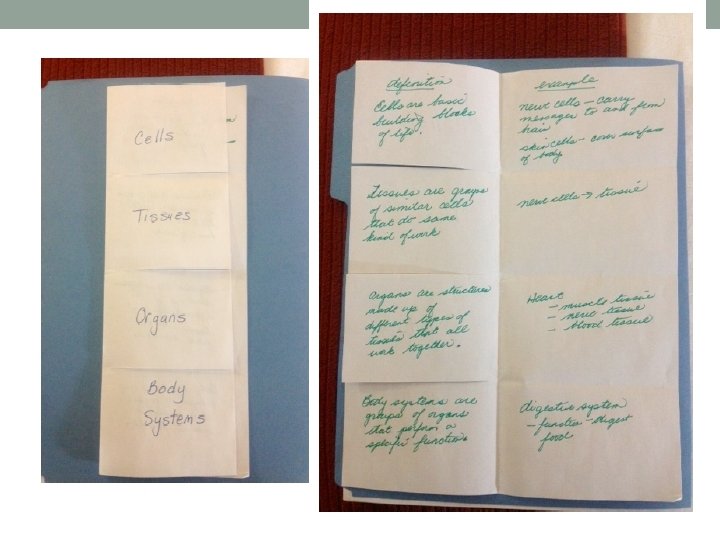 Cells
Tissues
Organs
Body
Systems
definition
Cells are basic
building blocks
of life.
Tissues are groups
of similar cells
that do same
kind of work
Organs are structures
made up of
different types of
tissues that all
work together.
Body systems are
groups of organs
that perform a
specific function.
example
nerve cells - carry
messages to and from
brain
skin cells - cover surface
of body
nerve cells → tissue
Heart
- muscle tissue
- nerve tissue
- blood tissue
digestive system
- function - digest
food